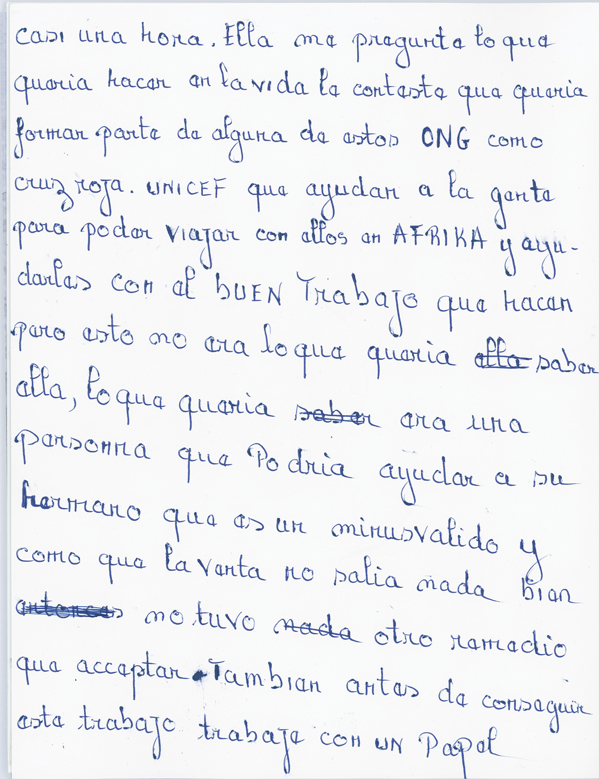 casi una hora. Ella me pregunte lo que
queria hacer en la vida le conteste que queria
formar parte de alguna de estos ONG como
cruz roja. UNICEF que ayudan a la gente
para poder viajar con ellos en AFRIKA y ayu-
darles con el bUEN Trabajo que hacen
pero esto no era lo que queria ella saber
ella, lo que queria saber era una
personna que Podria ayudar a su
hermano que es un minusvalido y
como que la venta no salia nada bien
entonces no tuvo nada otro remedio
que acceptar. Tambien antes de conseguir
este trabajo trabaje con UN Papel